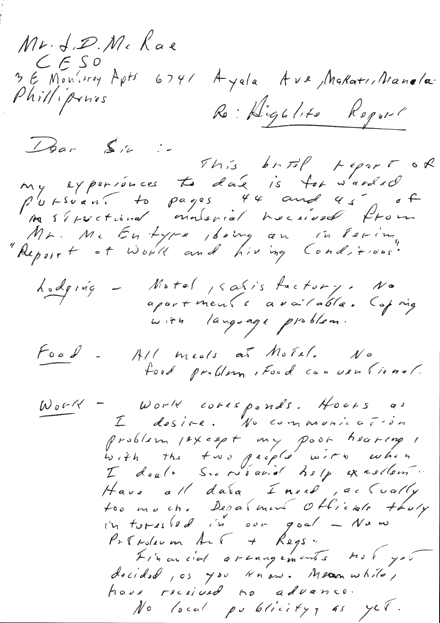 Mr. J. D. McRae
CESO
3 E Monterey Apts 6741 Ayala Ave, Makati, Manola
Phillipines
Re: Highlite Report
Dear Sir :-
This brief report of
my experiences to date is forwarded
pursuant to pages 44 and 45 of
instructional material received from
Mr. McEntyre, being an interim
"Report of Work and Living Conditions".
Lodging - Motel, satisfactory. No
apartments available. Coping
with language problem.
Food - All meals at Motel. No
food problem, Food conventional.
Work - Work coresponds. Hours as
I desire. No communication
problem, except my poor hearing,
with the two people with whom
I deal. Secretarial help excellent.
Have all data I need, actually
too much. Department Officials truly
interested in our goal - New
Petroleum Act + Regs.
Financial arrangements not yet
decided, as you know. Meanwhile,
have received no advance.
No local publicity, as yet.